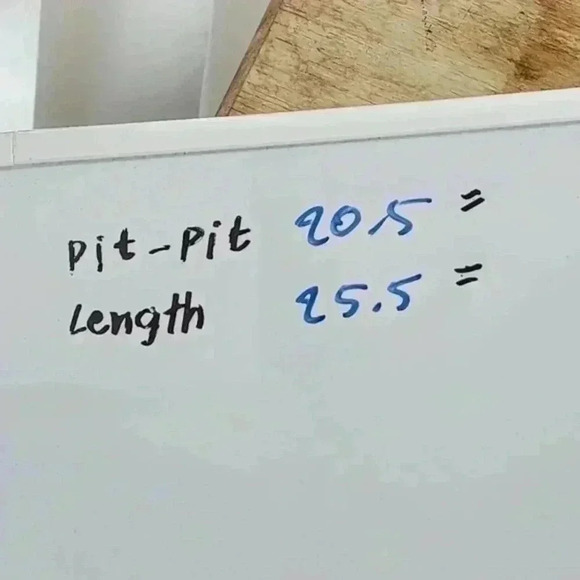 Pit-Pit 20.5 =
Length 25.5 =